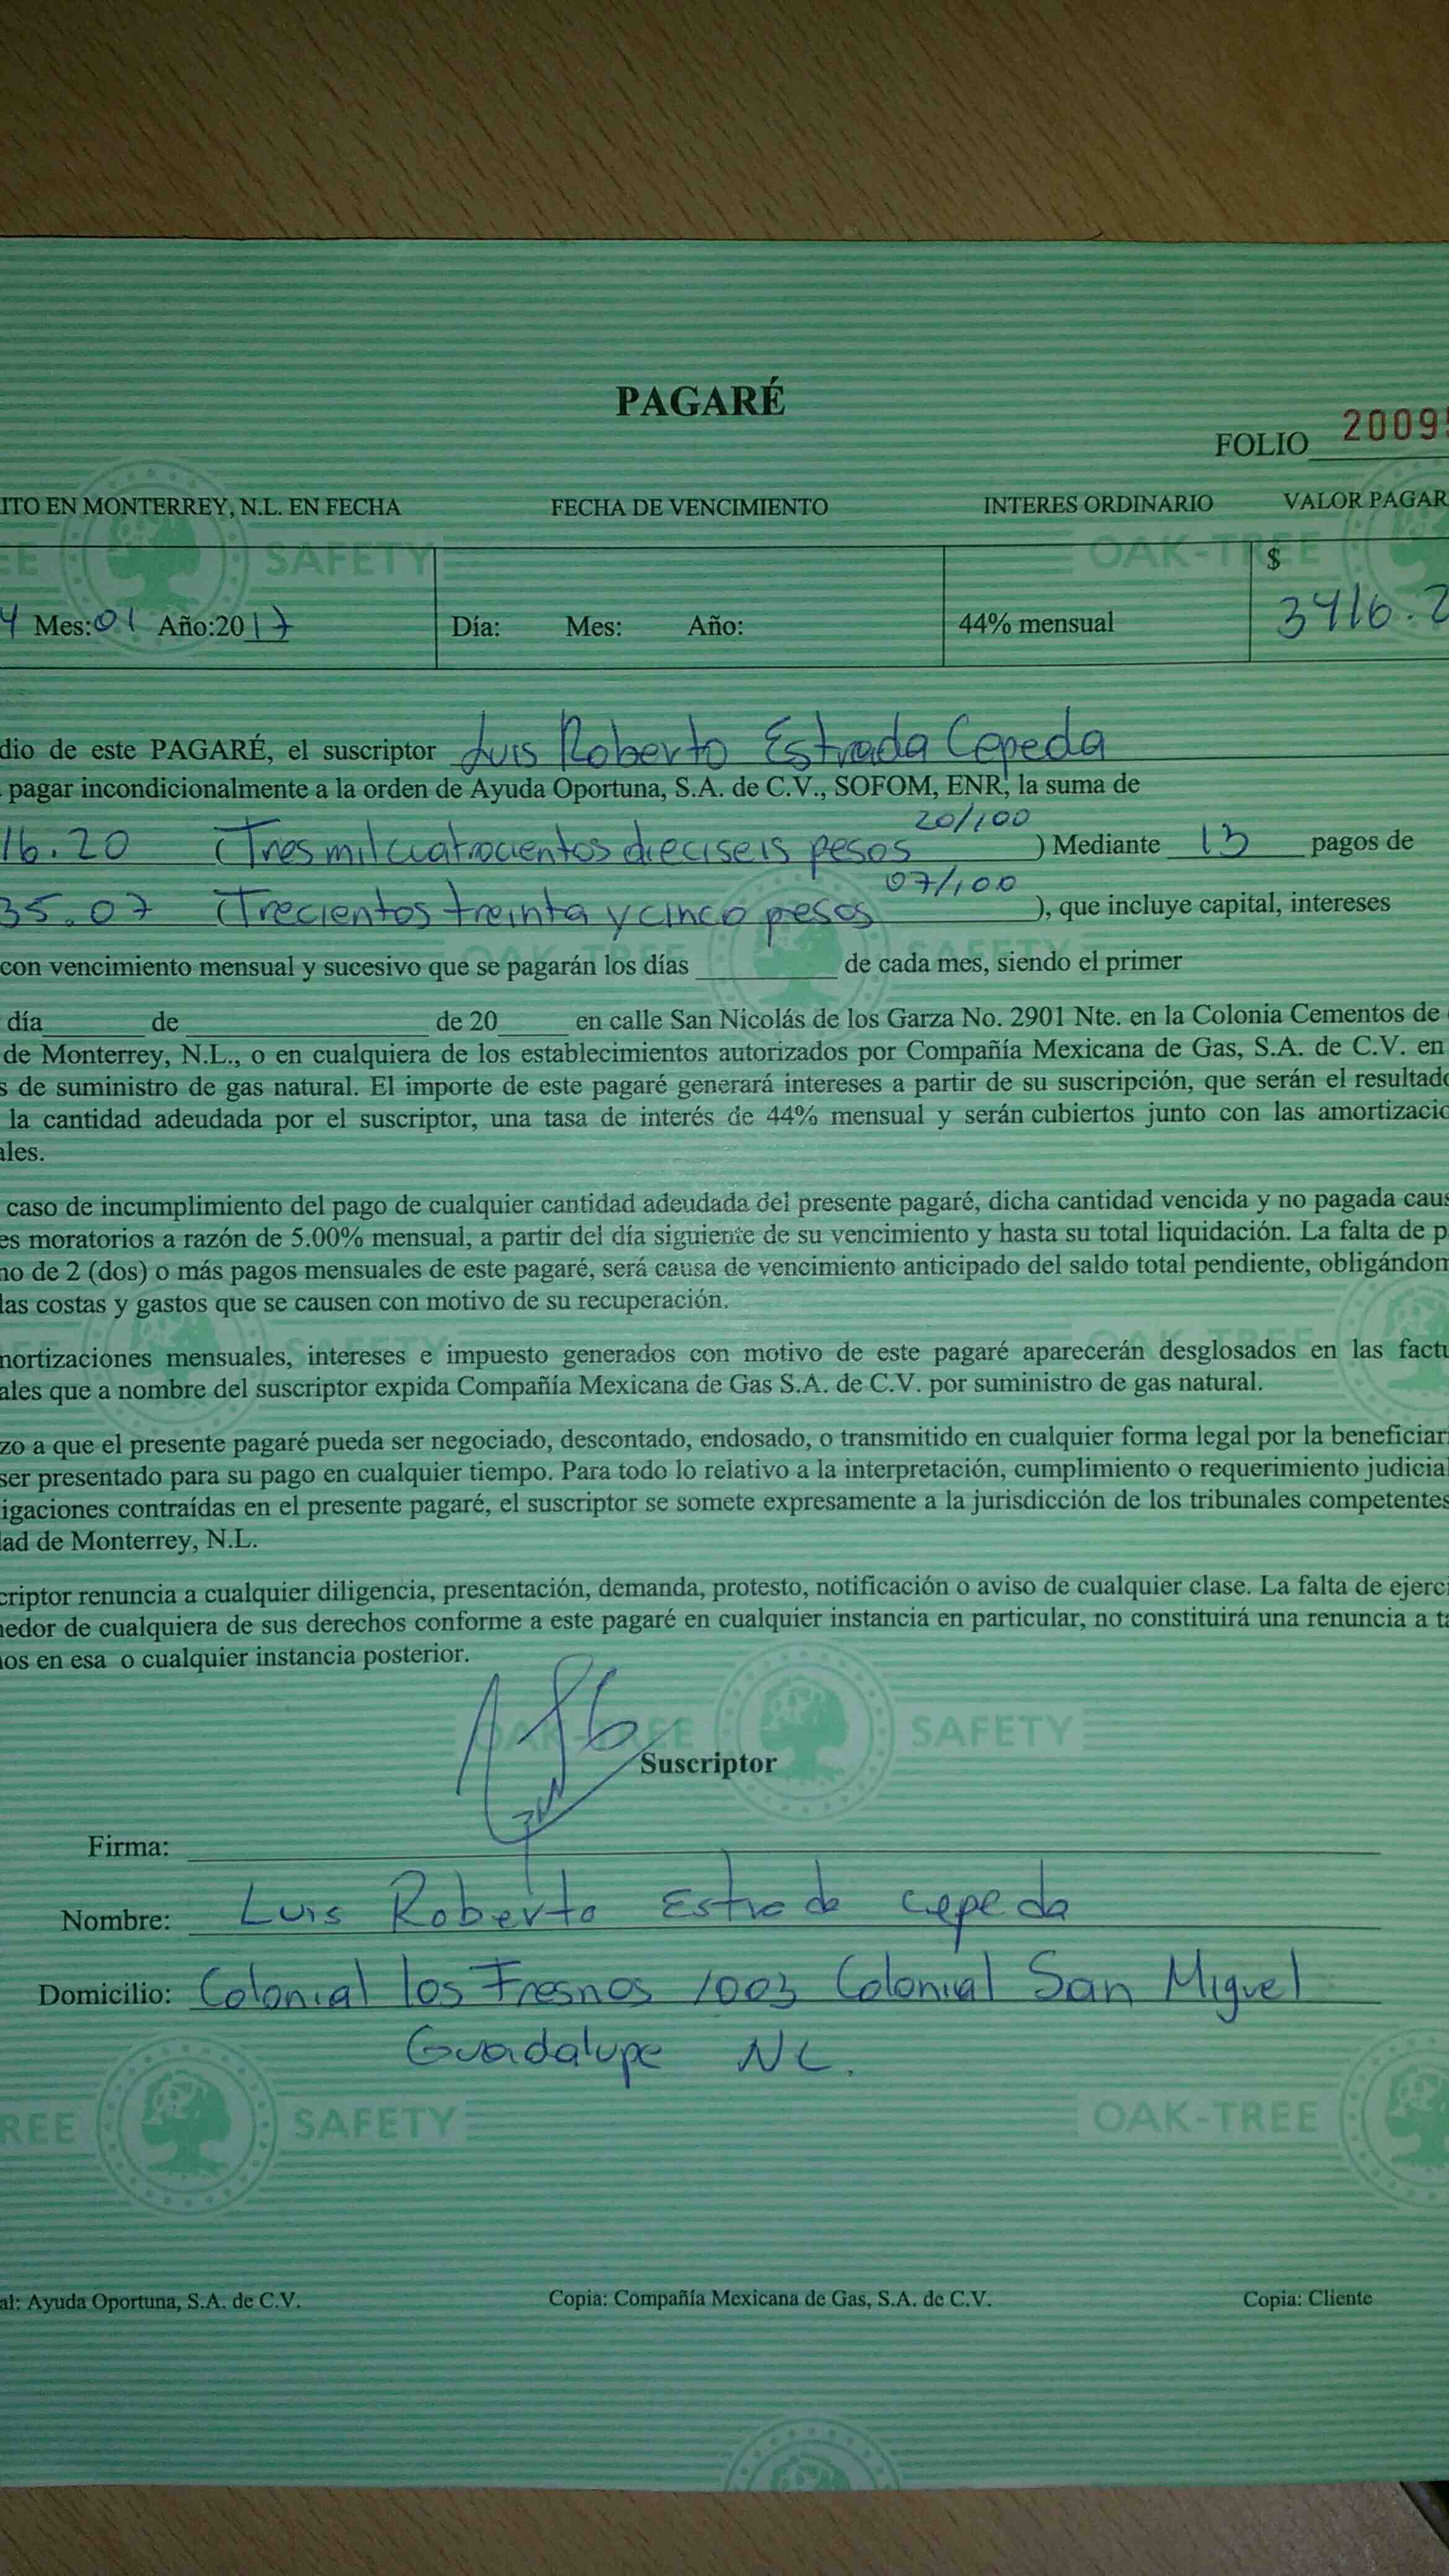 PAGARÉ
FOLIO 2009
ITO EN MONTERREY, N.L. EN FECHA FECHA DE VENCIMIENTO INTERES ORDINARIO VALOR PAGAR
$
4 Mes:01 Año:2017 Día: Mes: Año: 44% mensual 3416.2
dio de este PAGARÉ, el suscriptor Luis Roberto Estrada Cepeda
pagar incondicionalmente a la orden de Ayuda Oportuna, S.A. de C.V., SOFOM, ENR, la suma de
16.20 (Tres mil cuatrocientos dieciseis pesos 20/100 ) Mediante 13 pagos de
35.07 (Trecientos treinta y cinco pesos 07/100 ), que incluye capital, intereses
con vencimiento mensual y sucesivo que se pagarán los días de cada mes, siendo el primer
día de de 20 en calle San Nicolás de los Garza No. 2901 Nte. en la Colonia Cementos de
de Monterrey, N.L., o en cualquiera de los establecimientos autorizados por Compañía Mexicana de Gas, S.A. de C.V. en
s de suministro de gas natural. El importe de este pagaré generará intereses a partir de su suscripción, que serán el resultado
la cantidad adeudada por el suscriptor, una tasa de interés de 44% mensual y serán cubiertos junto con las amortizacio
ales.
caso de incumplimiento del pago de cualquier cantidad adeudada del presente pagaré, dicha cantidad vencida y no pagada caus
es moratorios a razón de 5.00% mensual, a partir del día siguiente de su vencimiento y hasta su total liquidación. La falta de p
no de 2 (dos) o más pagos mensuales de este pagaré, será causa de vencimiento anticipado del saldo total pendiente, obligándom
las costas y gastos que se causen con motivo de su recuperación.
mortizaciones mensuales, intereses e impuesto generados con motivo de este pagaré aparecerán desglosados en las factu
ales que a nombre del suscriptor expida Compañía Mexicana de Gas S.A. de C.V. por suministro de gas natural.
zo a que el presente pagaré pueda ser negociado, descontado, endosado, o transmitido en cualquier forma legal por la beneficiar
ser presentado para su pago en cualquier tiempo. Para todo lo relativo a la interpretación, cumplimiento o requerimiento judicial
igaciones contraídas en el presente pagaré, el suscriptor se somete expresamente a la jurisdicción de los tribunales competentes
dad de Monterrey, N.L.
criptor renuncia a cualquier diligencia, presentación, demanda, protesto, notificación o aviso de cualquier clase. La falta de ejerci
edor de cualquiera de sus derechos conforme a este pagaré en cualquier instancia en particular, no constituirá una renuncia a ta
os en esa o cualquier instancia posterior.
Suscriptor
Firma:
Nombre: Luis Roberto Estrada Cepeda
Domicilio: Colonial los Fresnos 1003 Colonial San Miguel
Guadalupe NL.
REE SAFETY OAK-TREE
al: Ayuda Oportuna, S.A. de C.V. Copia: Compañía Mexicana de Gas, S.A. de C.V. Copia: Cliente